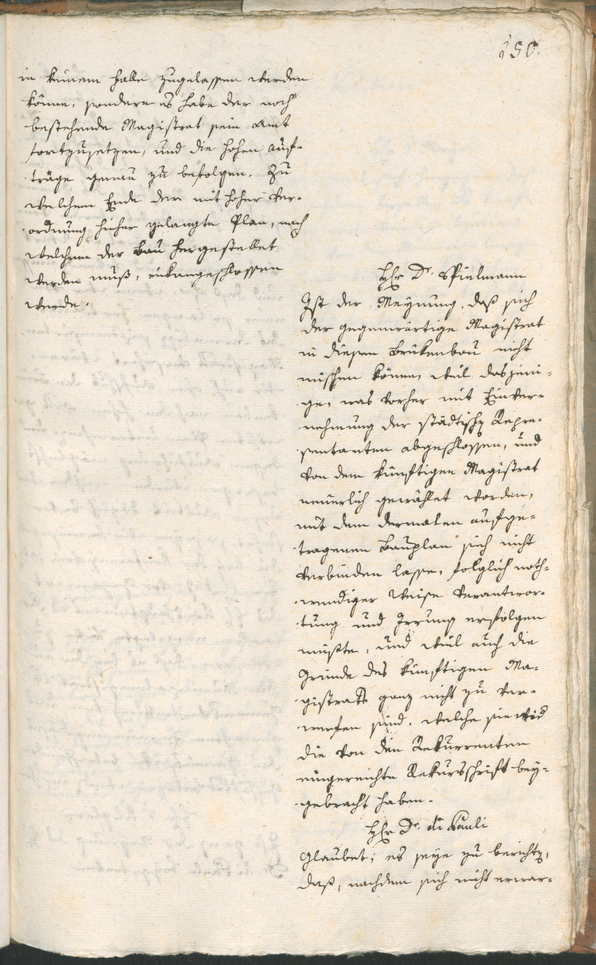 150.
in keinem Falle zugelassen werden
könne, sondern es habe der noch
bestehende Magistrat sein Amt
fortzusetzen, und die hohen Auf-
träge genau zu befolgen. Zu
welchem Ende der mit hoher Ver-
ordnung hieher gelangte Plan, nach
welchem der Bau hergestellet
werden muß, angeschlossen
werde.
Hr Dr. Spielmann
Ist der Meynung, daß sich
der gegenwärtige Magistrat
in diesen Brükenbau nicht
mischen könne, weil dasjeni-
ge, was vorher mit Einver-
nehmung der städtischen Reprä-
sentanten abgeschlossen, und
von dem künftigen Magistrat
neuerlich gewählet worden,
mit dem dermalen aufge-
tragenen Bauplan sich nicht
verbinden lasse, folglich noth-
wendiger Weise Verantwor-
tung und Irrung erfolgen
müßte, und weil auch die
Gründe des künftigen Ma-
gistrats ganz nicht zu ver-
werfen sind, welche sie wid
die von den Rekurrenten
eingereichte Rekursschrift bey-
gebracht haben.
Hr Dr. di Pauli
Glaubet: es seye zu berichten,
daß, nachdem sich nicht erwar-